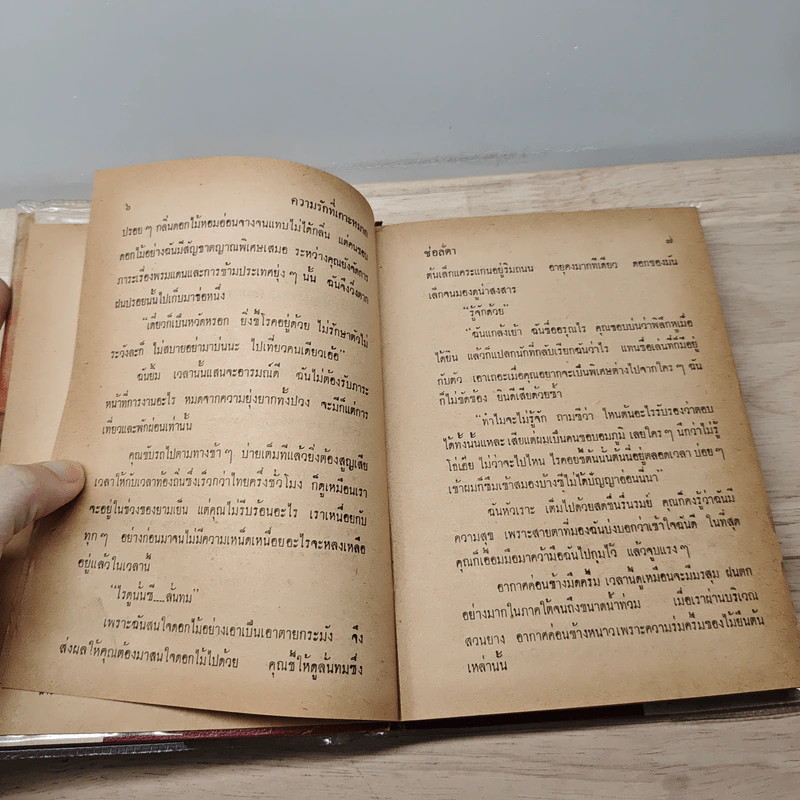 ๖ ความรักที่เกาะหมาก
ปรอย ๆ กลิ่นดอกไม้หอมอ่อนจางจนแทบไม่ได้กลิ่น แต่คนชอบ
ดอกไม้อย่างฉันมีสัญชาตญาณพิเศษเสมอ ระหว่างคุณยังจัดการ
ภาระเรื่องพรมแดนและการข้ามประเทศยุ่ง ๆ นั้น ฉันจึงวิ่งตาก
ฝนปรอยนั้นไปเก็บมาช่อหนึ่ง
"เดี๋ยวก็เป็นหวัดหรอก ยิ่งขี้โรคอยู่ด้วย ไม่รักษาตัวไม่
ระวังละก็ ไม่สบายอย่ามาบ่นนะ ไปเที่ยวคนเดียวเอ้อ"
ฉันยิ้ม เวลานั้นแสนจะอารมณ์ดี ฉันไม่ต้องรับภาระ
หน้าที่การงานอะไร หมดจากความยุ่งยากทั้งปวง จะมีก็แต่การ
เที่ยวและพักผ่อนเท่านั้น
คุณขับรถไปตามทางช้า ๆ บ่ายเต็มทีแล้วยิ่งต้องสูญเสีย
เวลาให้กับเวลาท้องถิ่นซึ่งเร็วกว่าไทยครึ่งชั่วโมง ก็ดูเหมือนเรา
จะอยู่ในช่วงของยามเย็น แต่คุณไม่รีบร้อนอะไร เราเหนื่อยกับ
ทุก ๆ อย่างก่อนมาจนไม่มีความเหน็ดเหนื่อยอะไรจะหลงเหลือ
อยู่แล้วในเวลานี้
"ไรดูนั่นซี.....ลั่นทม"
เพราะฉันสนใจดอกไม้อย่างเอาเป็นเอาตายกระมัง จึง
ส่งผลให้คุณต้องมาสนใจดอกไม้ไปด้วย คุณชี้ให้ดูลั่นทมซึ่ง
ช่อลัดา ๗
ต้นเล็กแคระแกนอยู่ริมถนน อายุคงมากทีเดียว ดอกของมัน
เล็กจนมองดูน่าสงสาร
"รู้จักด้วย"
"ฉันแกล้งเย้า ฉันชื่ออรุณไร คุณชอบบ่นว่าพิลึกหูเมื่อ
ได้ยิน แล้วก็แปลกนักที่กลับเรียกฉันว่าไร แทนชื่อเล่นที่ก็มีอยู่
กับตัว เอาเถอะเมื่อคุณอยากจะเป็นพิเศษต่างไปจากใคร ๆ ฉัน
ก็ไม่ขัดข้อง ยินดีเสียด้วยซ้ำ
"ทำไมจะไม่รู้จัก ถามซีว่า ไหนต้นอะไรรับรองว่าตอบ
ได้ทั้งนั้นแหละ เสียแต่ผมเป็นคนชอบอมภูมิ เลยใคร ๆ นึกว่าไม่รู้
โธ่เอ๋ย ไม่ว่าจะไปไหน ไรคอยชี้ต้นไม้นั้นต้นนี้อยู่ตลอดเวลา บ่อย ๆ
เข้าผมก็ซึมเข้าสมองบ้างซี ไม่ได้ปัญญาอ่อนนี่นา"
ฉันหัวเราะ เต็มไปด้วยสดชื่นรื่นรมย์ คุณก็คงรู้ว่าฉันมี
ความสุข เพราะสายตาที่มองฉันบ่งบอกว่าเข้าใจฉันดี ในที่สุด
คุณก็เอื้อมมือมาคว้ามือฉันไปกุมไว้ แล้วจูบแรง ๆ
อากาศค่อนข้างมืดครึ้ม เวลานี้ดูเหมือนจะมีมรสุม ฝนตก
อย่างมากในภาคใต้จนถึงขนาดน้ำท่วม เมื่อเราผ่านบริเวณ
สวนยาง อากาศค่อนข้างหนาวเพราะความร่มครึ้มของไม้ยืนต้น
เหล่านั้น